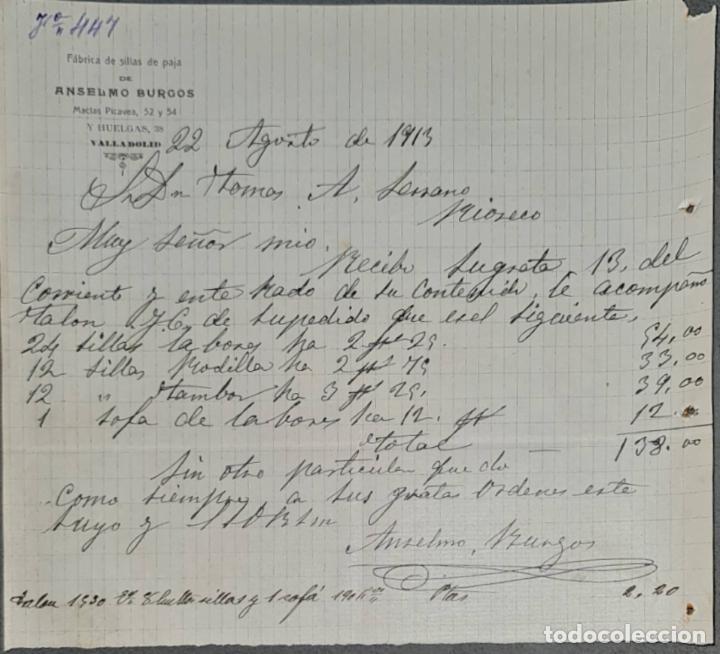 447
Fábrica de sillas de paja
DE
ANSELMO BURGOS
Macías Picavea, 52 y 54
Y HUELGAS, 38
VALLADOLID
22 Agosto de 1913
Sr Dn Thomas A. Serrano
Rioseco
Muy Señor mio.
Recibi Sugrata 13, del
Corriente y enterado de Su Contenido, le acompaño
talon de Supedido que esel Siguiente,
24 Sillas labores ha 2 25. 54,00
12 Sillas Rodilla ha 2 75 33,00
12 " Tambor ha 3 25, 39,00
1 Sofa de labores ha 12. 12.00
total 138.00
Sin otro particular quedo
Como Siempre a Sus gratas Ordenes este
Suyo y
Anselmo, Burgos
Talon 1530 sillas y 1 sofá 190 Ptas 2,20
todocoleccion
todocoleccion.net